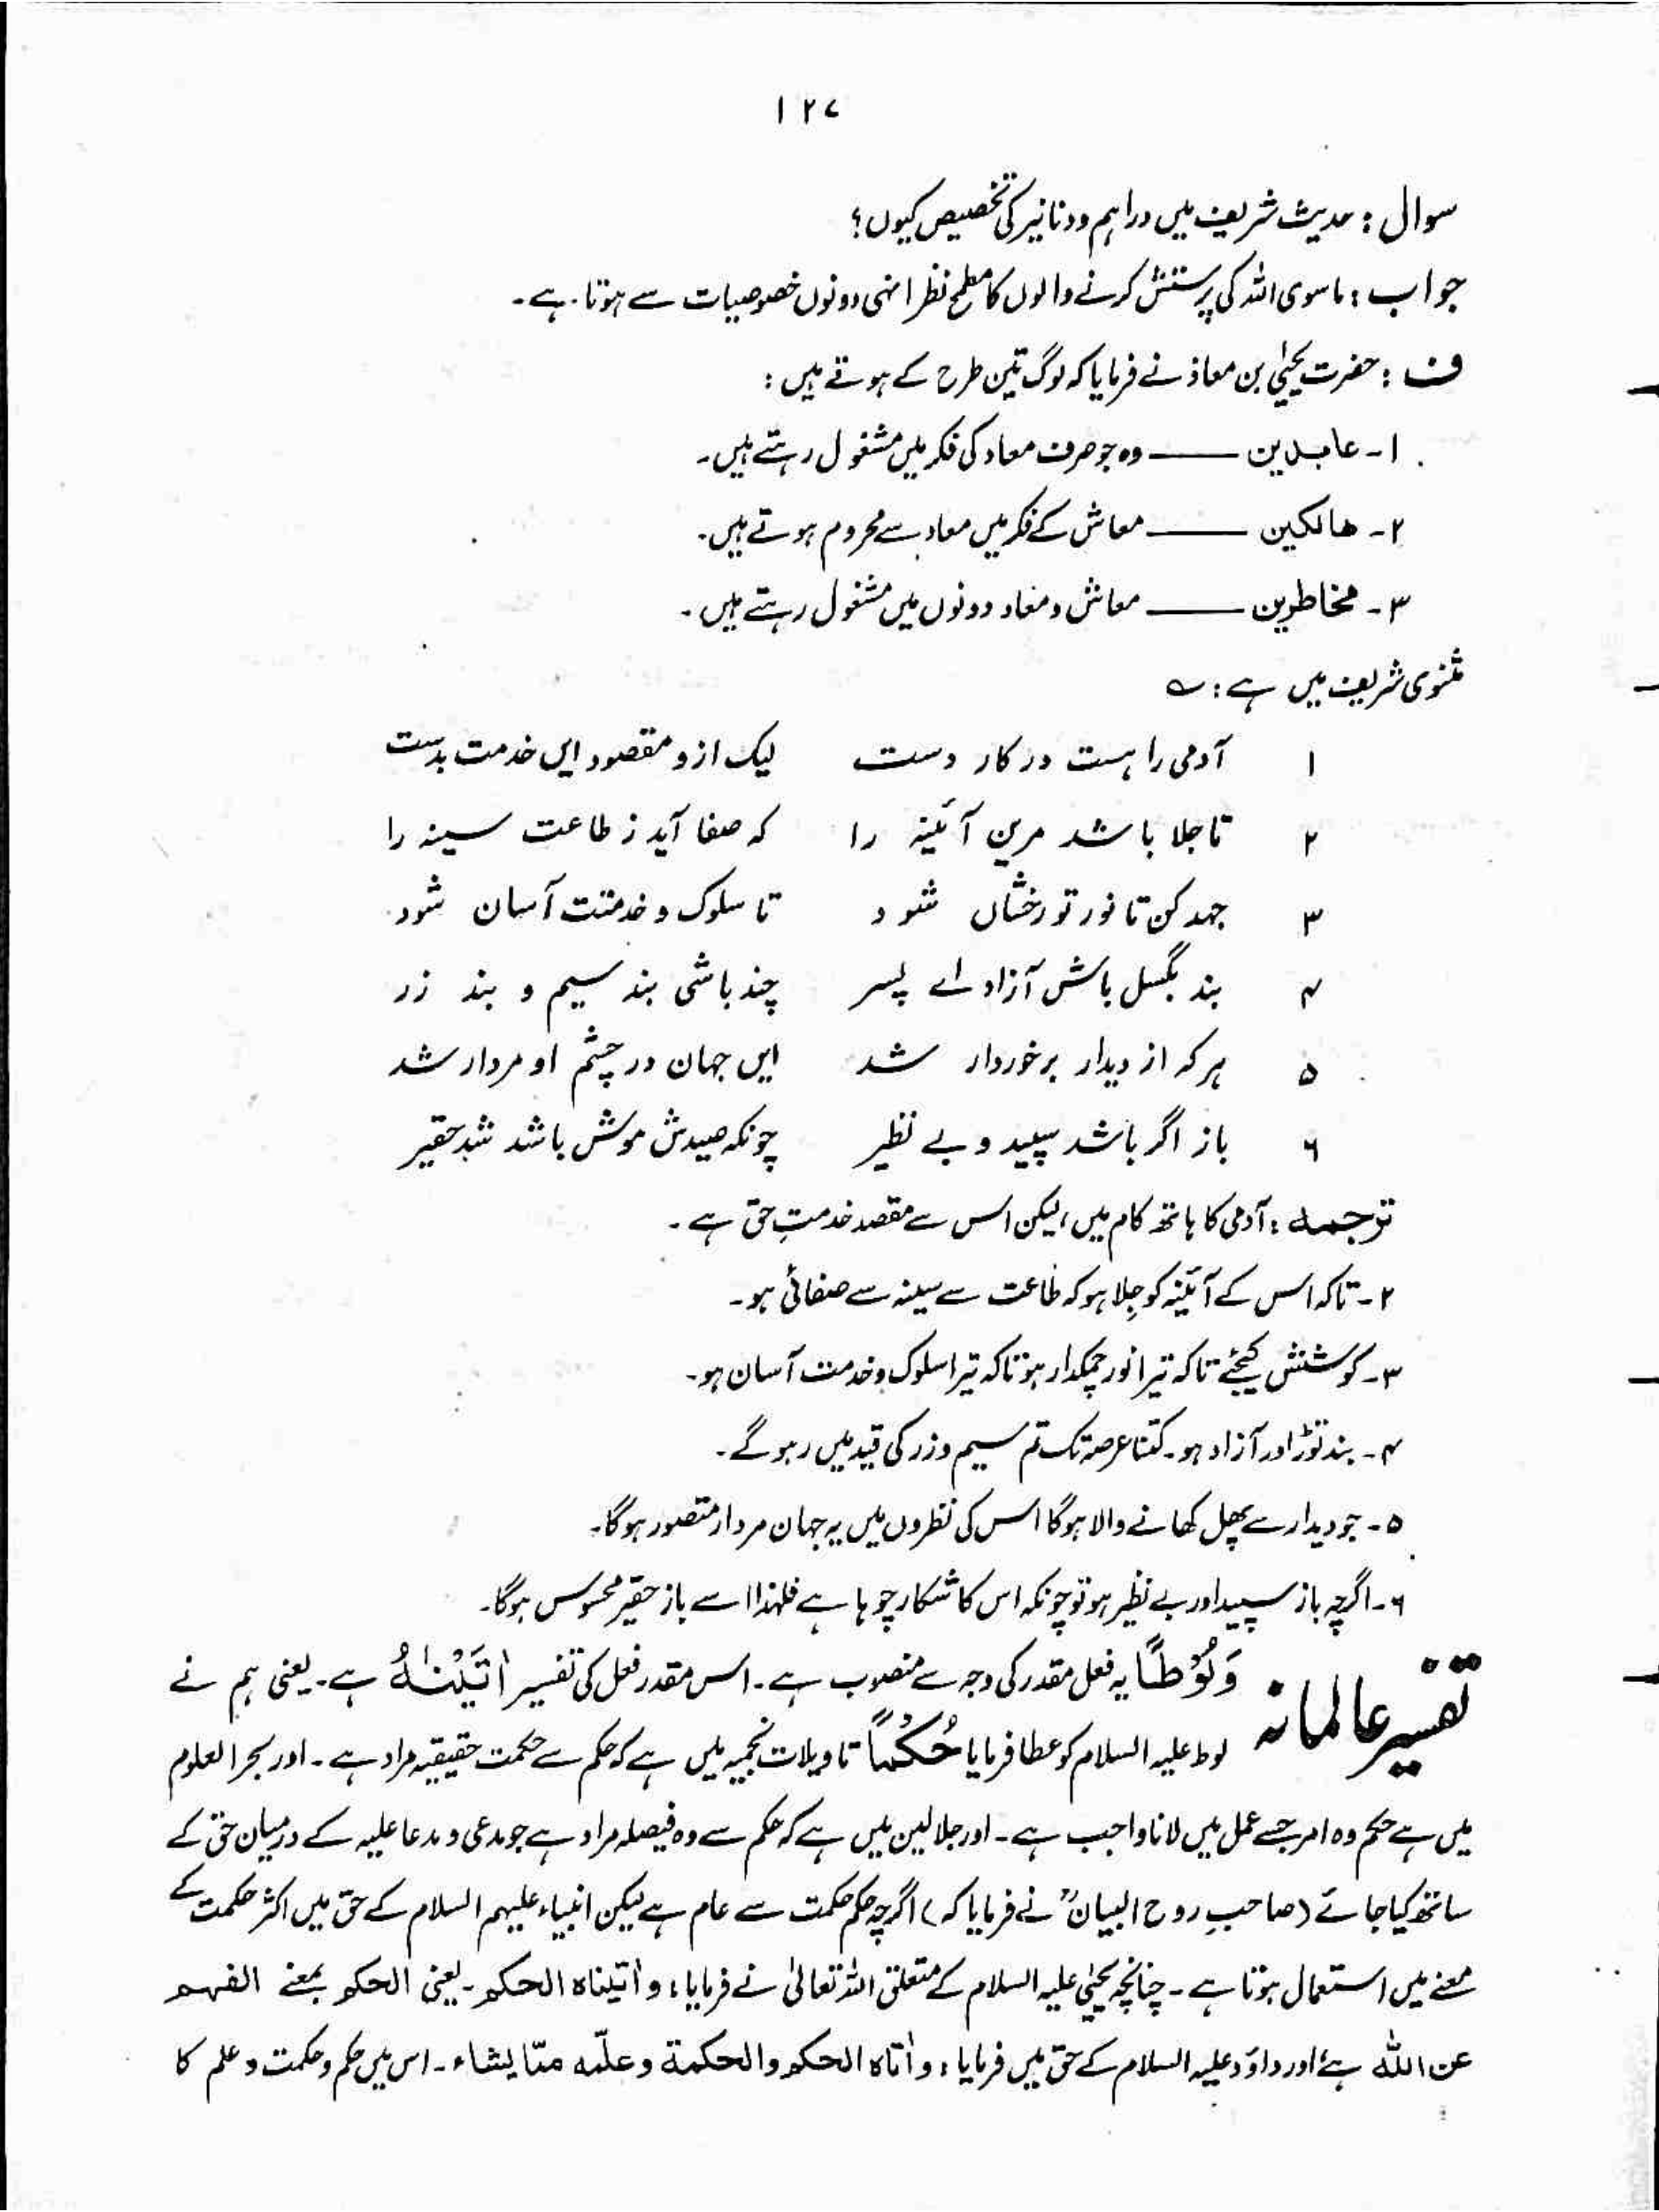 ۱۲۷
سوال : حدیث شریف میں دراہم و دنانیر کی تخصیص کیوں؟
جواب : ماسوی اللہ کی پرستش کرنے والوں کا مطمح نظر انہی دونوں خصوصیات سے ہوتا ہے۔
ف : حضرت یحیٰی بن معاذ نے فرمایا کہ لوگ تین طرح کے ہوتے ہیں :
۱۔ عابدین ــــــ وہ جو صرف معاد کی فکر میں مشغول رہتے ہیں۔
۲۔ ھالکین ــــــ معاش کے فکر میں معاد سے محروم ہوتے ہیں۔
۳۔ مخاطرین ــــــ معاش و معاد دونوں میں مشغول رہتے ہیں۔
مثنوی شریف میں ہے : ؎
۱ آدمی را ہست در کار دست لیک ازو مقصود ایں خدمت بدست
۲ تا جلا باشد مرین آئینہ را کہ صفا آید ز طاعت سینہ را
۳ جہد کن تا نور تو رخشاں شود تا سلوک و خدمتت آسان شود
۴ بند بگسل باش آزاد اے پسر چند باشی بند سیم و بند زر
۵ ہر کہ از دیدار برخوردار شد ایں جہان در چشم او مردار شد
۶ باز اگر باشد سپید و بے نظیر چونکہ صیدش موش باشد شد حقیر
ترجمہ : آدمی کا ہاتھ کام میں، لیکن اس سے مقصد خدمتِ حق ہے۔
۲۔ تاکہ اس کے آئینہ کو جِلا ہو کہ طاعت سے سینہ سے صفائی ہو۔
۳۔ کوشش کیجئے تاکہ تیرا نور چمکدار ہو تاکہ تیرا سلوک و خدمت آسان ہو۔
۴۔ بند توڑ اور آزاد ہو۔ کتنا عرصہ تک تم سیم و زر کی قید میں رہو گے۔
۵۔ جو دیدار سے پھل کھانے والا ہوگا اس کی نظروں میں یہ جہان مردار متصور ہوگا۔
۶۔ اگرچہ باز سپید اور بے نظیر ہو تو چونکہ اس کا شکار چوہا ہے فلہٰذا اسے باز حقیر محسوس ہوگا۔
تفسیر عالمانہ وَلُوْطًا یہ فعل مقدر کی وجہ سے منصوب ہے۔ اس مقدر فعل کی تفسیر اٰتَیْنٰہُ ہے۔ یعنی ہم نے
لوط علیہ السلام کو عطا فرمایا حُکْمًا تاویلات نجمیہ میں ہے کہ حکم سے حکمت حقیقیہ مراد ہے۔ اور بحر العلوم
میں ہے حکم وہ امر جسے عمل میں لانا واجب ہے۔ اور جلالین میں ہے کہ حکم سے وہ فیصلہ مراد ہے جو مدعی و مدعا علیہ کے درمیان حق کے
ساتھ کیا جائے (صاحبِ روح البیانؒ نے فرمایا کہ) اگرچہ حکم حکمت سے عام ہے لیکن انبیاء علیہم السلام کے حق میں اکثر حکمت کے
معنے میں استعمال ہوتا ہے۔ چنانچہ یحیٰی علیہ السلام کے متعلق اللہ تعالیٰ نے فرمایا : و اٰتیناہ الحکم۔ یعنی الحکم بمعنے الفہم
عن اللہ ہے اور داؤد علیہ السلام کے حق میں فرمایا : و اٰتاہ الحکم والحکمة و علّمه ممّا یشاء۔ اس میں حکم و حکمت و علم کا